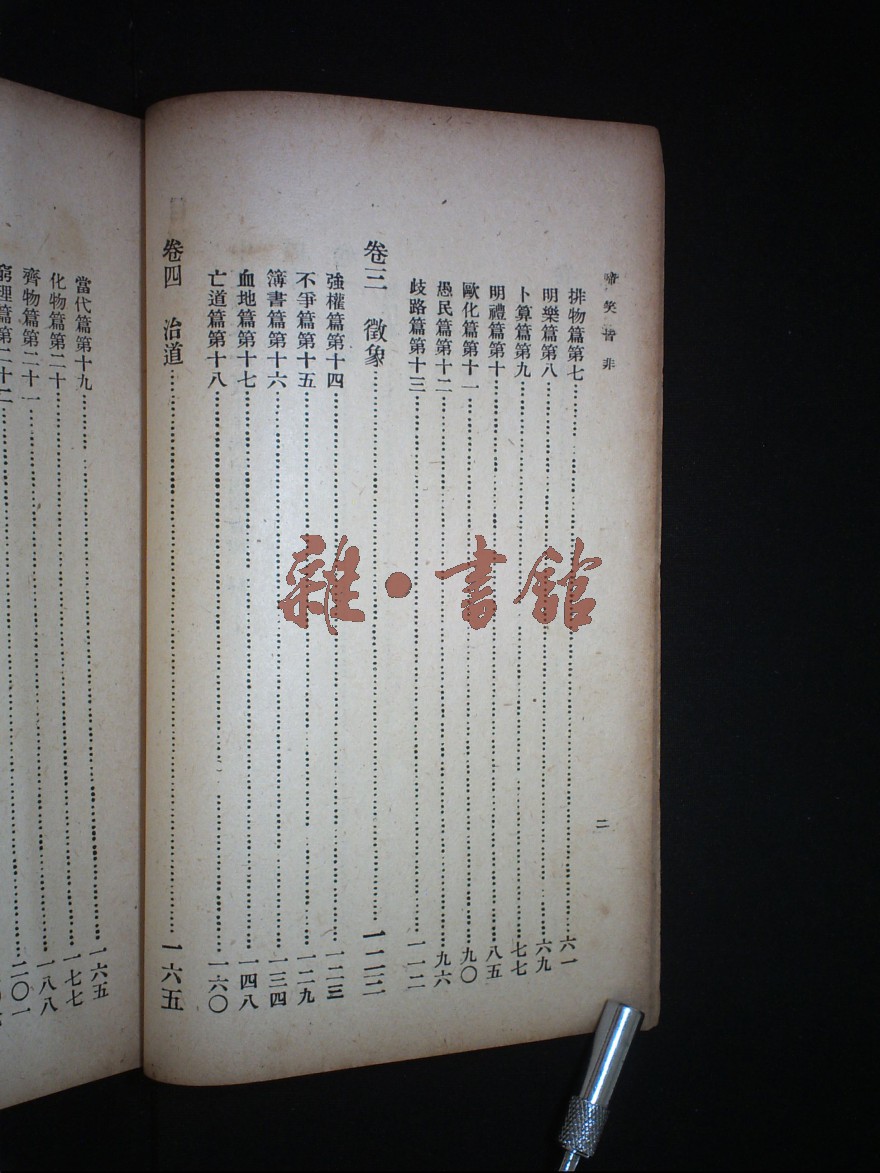 啼笑皆非
二
排物篇第七……六一
明樂篇第八……六九
卜算篇第九……七七
明禮篇第十……八五
歐化篇第十一……九〇
愚民篇第十二……九六
歧路篇第十三……一一二
卷三 徵象……一二三
強權篇第十四……一二三
不爭篇第十五……一二九
簿書篇第十六……一三四
血地篇第十七……一四八
亡道篇第十八……一六〇
卷四 治道……一六五
當代篇第十九……一六五
化物篇第二十……一七七
齊物篇第二十一……一八八
窮理篇第二十二……二〇一
雜·書館